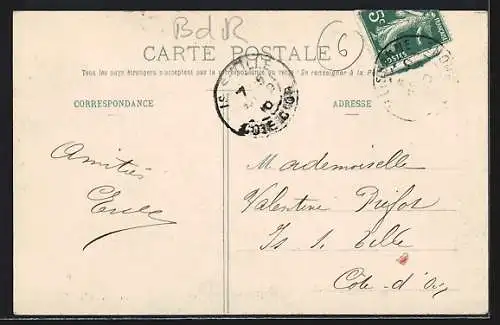 BdR
6
CARTE POSTALE
Tous les pays étrangers n'acceptent pas la correspondance au recto (Se renseigner à la Poste)
CORRESPONDANCE
ADRESSE
5c
IS-S-TILLE
7
10
COTE-D'OR
Amitiés
Mademoiselle
Valentine
Is s. Tille
Côte-d'Or